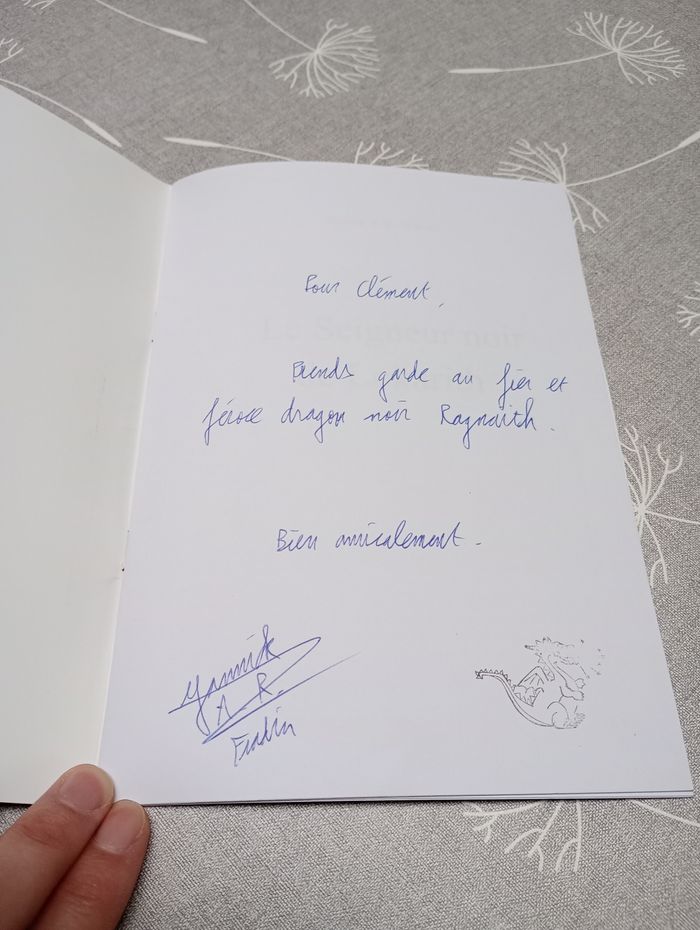 Pour Clément,
Le Seigneur noir
Prends garde au fier et
féroce dragon noir Ragnarith.
Bien amicalement.
Yannick
A. R.
Fradin